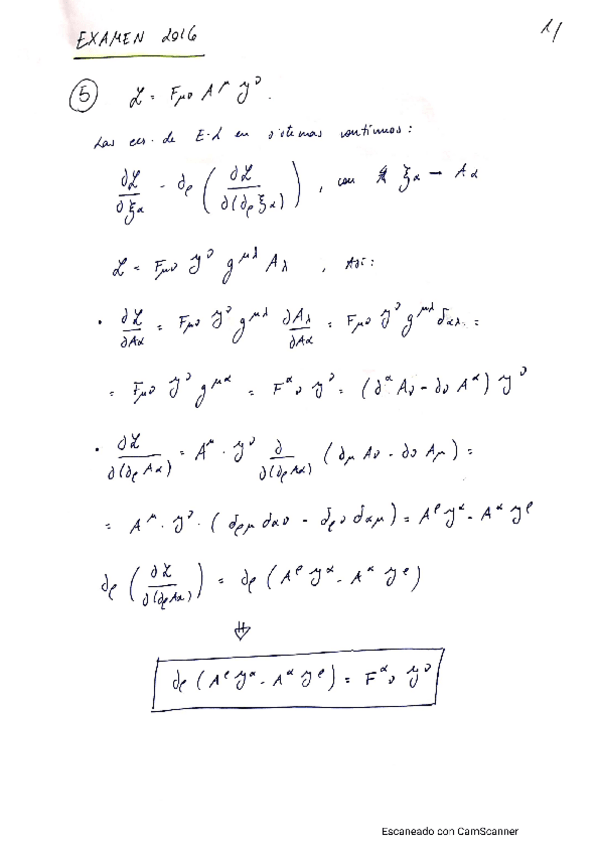 EXAMEN 2016
1/
⑤ ℒ = Fμν A^μ y^ν.
Las ecs. de E-L en sistemas continuos:
∂ℒ/∂ξα - ∂ρ (∂ℒ/∂(∂ρ ξα)), con ξα → Aα
ℒ = Fμν y^ν g^μλ Aλ , Así:
• ∂ℒ/∂Aα = Fμν y^ν g^μλ ∂Aλ/∂Aα = Fμν y^ν g^μλ δαλ =
= Fμν y^ν g^μα = F^α ν y^ν = (∂^α Aν - ∂ν A^α) y^ν
• ∂ℒ/∂(∂ρ Aα) = A^μ · y^ν ∂/∂(∂ρ Aα) (∂μ Aν - ∂ν Aμ) =
= A^μ · y^ν · (δρμ δαν - δρν δαμ) = A^ρ y^α - A^α y^ρ
∂ρ (∂ℒ/∂(∂ρ Aα)) = ∂ρ (A^ρ y^α - A^α y^ρ)
⇓
∂ρ (A^ρ y^α - A^α y^ρ) = F^α ν y^ν
Escaneado con CamScanner